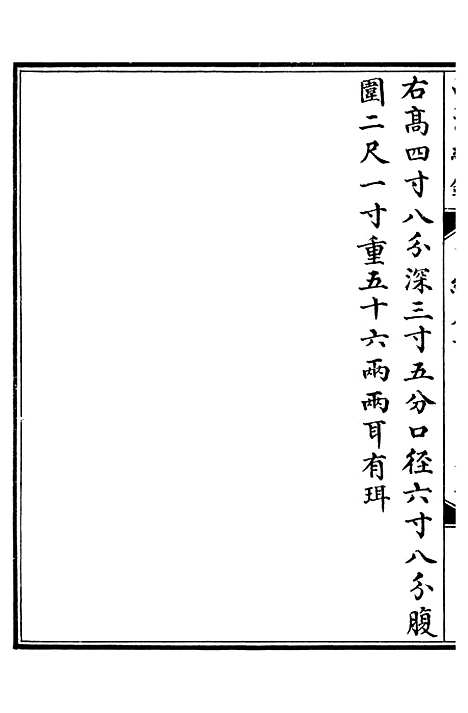 右高四寸八分深三寸五分口径六寸八分腹
圍二尺一寸重五十六兩兩耳有珥